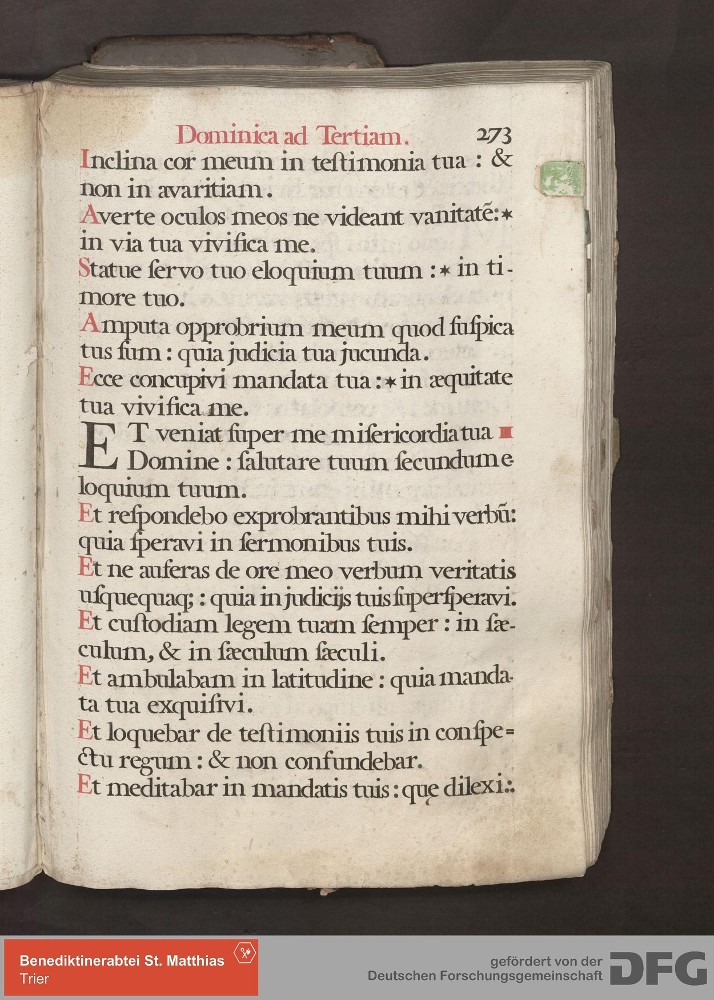 Dominica ad Tertiam. 273
Inclina cor meum in teſtimonia tua : &
non in avaritiam.
Averte oculos meos ne videant vanitatẽ:*
in via tua vivifica me.
Statue ſervo tuo eloquium tuum :* in ti-
more tuo.
Amputa opprobrium meum quod ſuſpica
tus ſum : quia judicia tua jucunda.
Ecce concupivi mandata tua :* in æquitate
tua vivifica me.
ET veniat ſuper me miſericordia tua
Domine : ſalutare tuum ſecundum e-
loquium tuum.
Et reſpondebo exprobrantibus mihi verbũ:
quia ſperavi in ſermonibus tuis.
Et ne auferas de ore meo verbum veritatis
uſquequaq; : quia in judicijs tuis ſuperſperavi.
Et cuſtodiam legem tuam ſemper : in ſæ-
culum, & in ſæculum ſæculi.
Et ambulabam in latitudine : quia manda-
ta tua exquiſivi.
Et loquebar de teſtimoniis tuis in conſpe=
ctu regum : & non confundebar.
Et meditabar in mandatis tuis : quę dilexi:.
Benediktinerabtei St. Matthias
Trier
gefördert von der
Deutschen Forschungsgemeinschaft
DFG